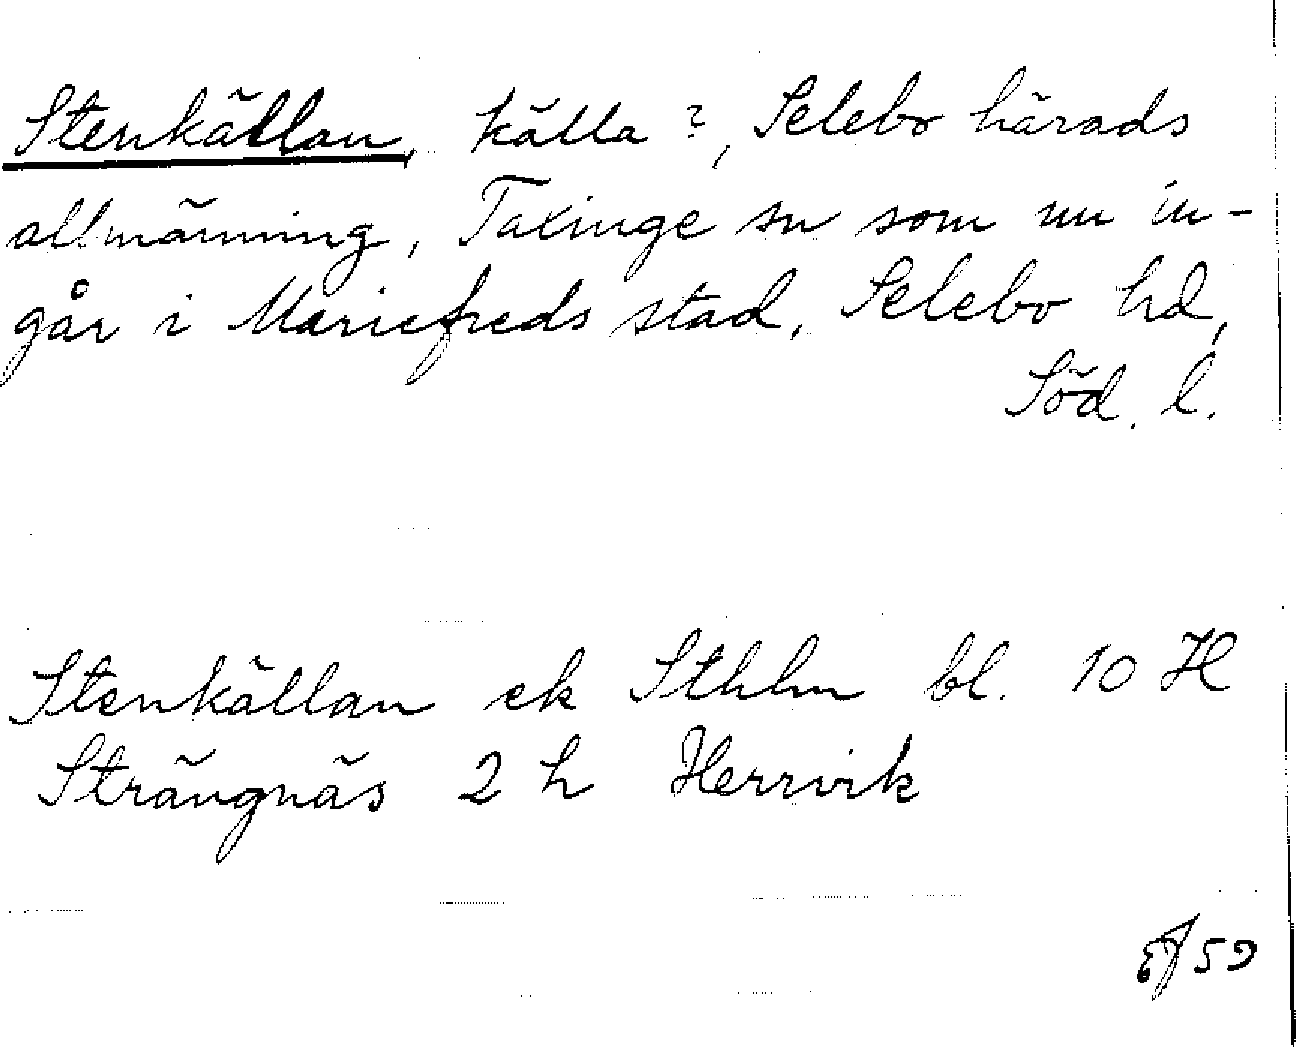 Stenkällan, källa ?, Selebo härads
allmänning, Taxinge sn som nu in-
går i Mariefreds stad, Selebo hd,
Söd. l.
Stenkällan ek Sthlm bl. 10 H
Strängnäs 2 h Herrvik
59